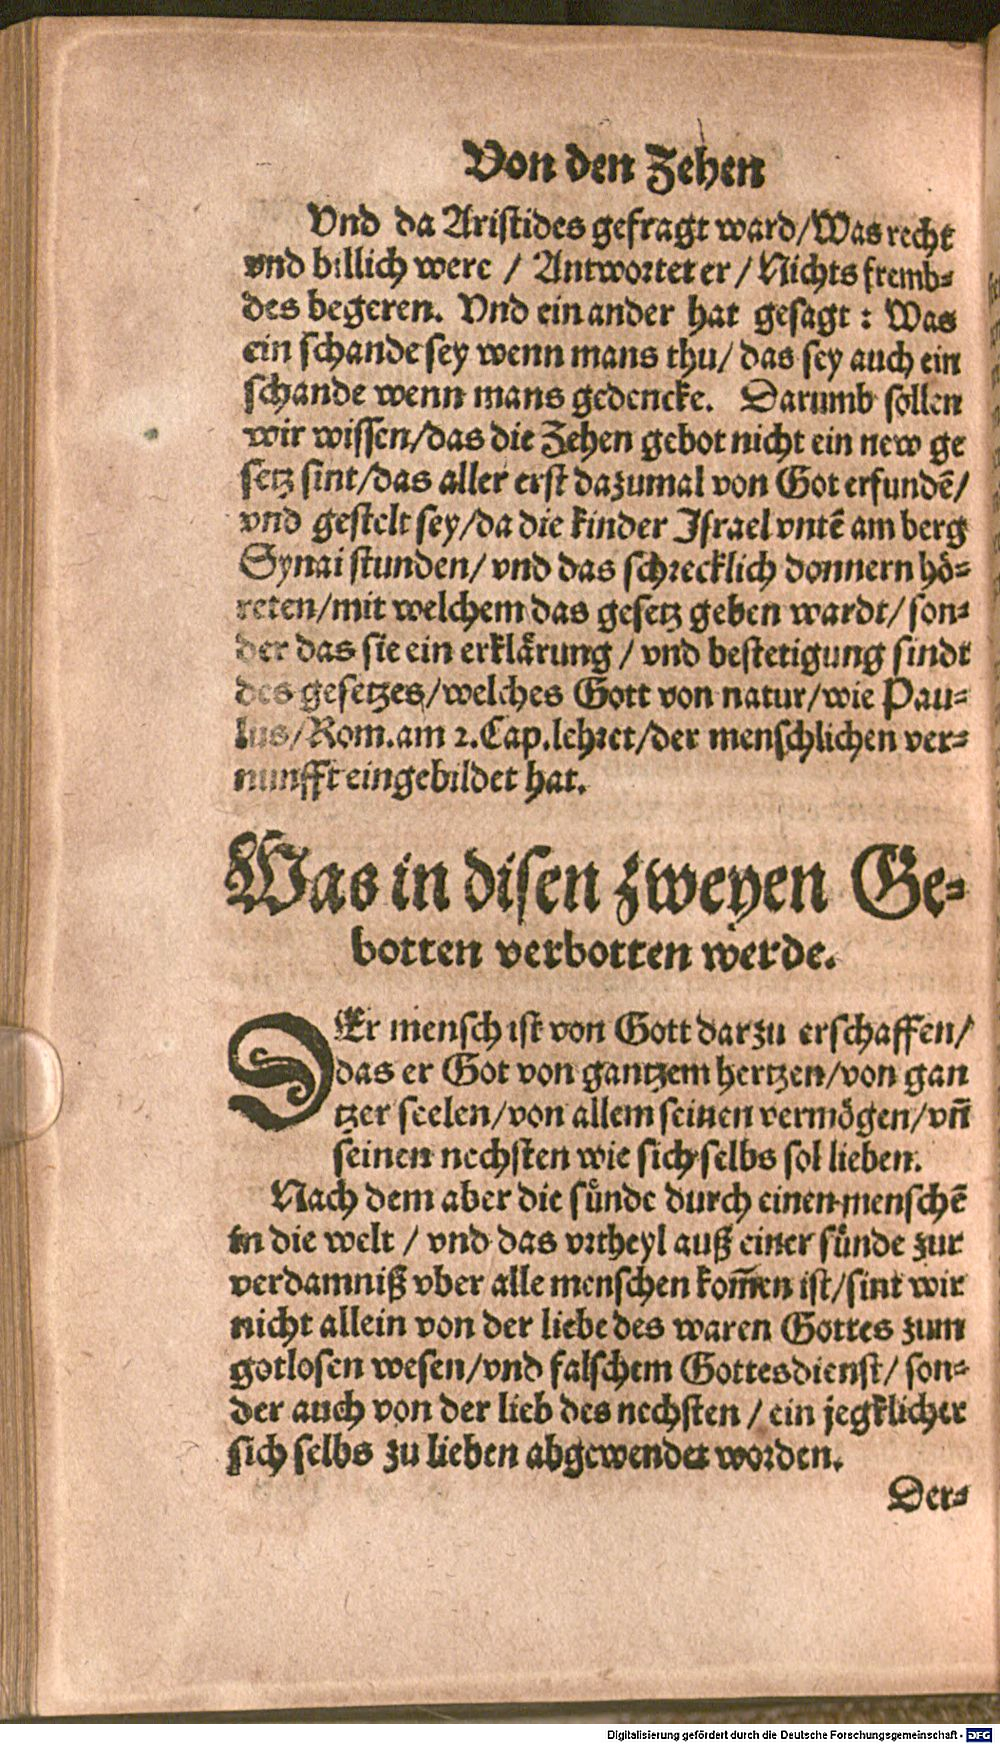 Von den Zehen
Vnd da Aristides gefragt ward/Was recht
vnd billich were / Antwortet er / Nichts fremb⸗
des begeren. Vnd ein ander hat gesagt : Was
ein schande sey wenn mans thu/ das sey auch ein
schande wenn mans gedencke. Darumb sollen
wir wissen/das die Zehen gebot nicht ein new ge
setz sint/das aller erst dazumal von Got erfundẽ/
vnd gestelt sey/da die kinder Israel vntẽ am berg
Synai stunden/ vnd das schrecklich donnern hö⸗
reten/mit welchem das gesetz geben wardt/ son⸗
der das sie ein erklärung / vnd bestetigung sindt
des gesetzes/welches Gott von natur/wie Pau⸗
lus/Rom.am 2.Cap.lehret/der menschlichen ver⸗
nunfft eingebildet hat.
Was in disen zweyen Ge⸗
botten verbotten werde.
DEr mensch ist von Gott darzu erschaffen/
das er Got von gantzem hertzen/von gan
tzer seelen/von allem seinen vermögen/vñ
seinen nechsten wie sich selbs sol lieben.
Nach dem aber die sünde durch einen menschẽ
in die welt / vnd das vrtheyl auß einer sünde zur
verdamniß vber alle menschen kom̃en ist/sint wir
nicht allein von der liebe des waren Gottes zum
gotlosen wesen/vnd falschem Gottesdienst/ son⸗
der auch von der lieb des nechsten / ein jegklicher
sich selbs zu lieben abgewendet worden.
Der⸗
Digitalisierung gefördert durch die Deutsche Forschungsgemeinschaft - DFG